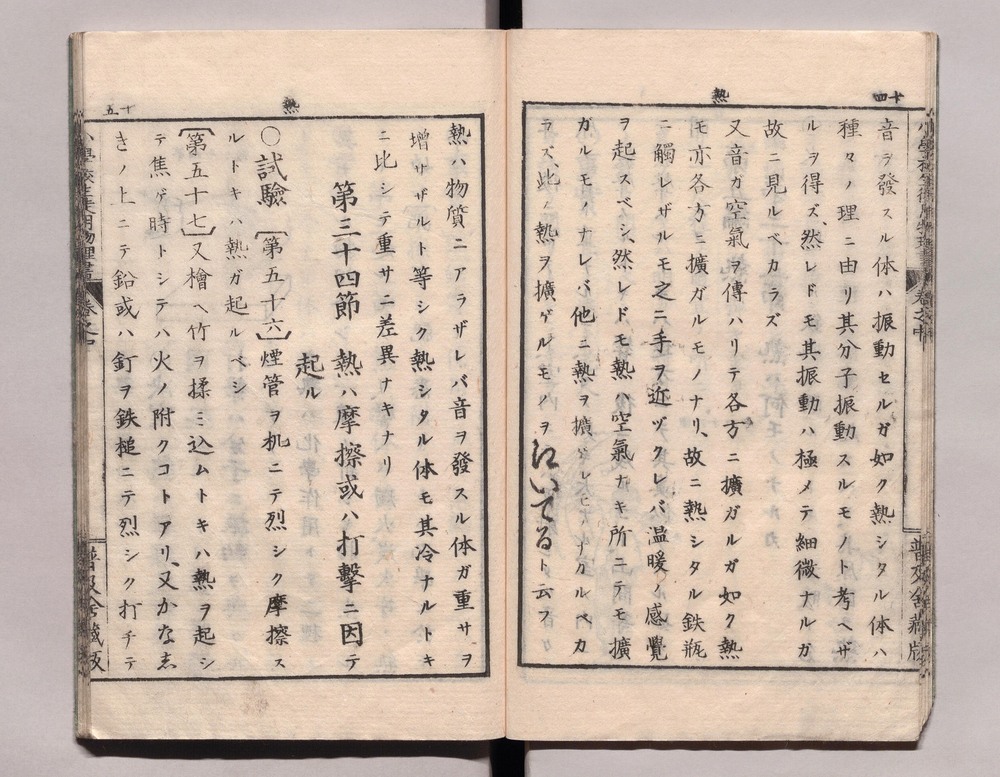 十四
熱
音ヲ發スル体ハ振動セルガ如ク熱シタル体ハ
種々ノ理ニ由リ其分子振動スルモノト考ヘザ
ルヲ得ズ、然レドモ其振動ハ極メテ細微ナルガ
故ニ見ルベカラズ
又音ガ空氣ヲ傳ハリテ各方ニ擴ガルガ如ク熱
モ亦各方ニ擴ガルモノナリ、故ニ熱シタル鉄瓶
ニ觸レザルモ之ニ手ヲ近ヅクレバ温暖ノ感覺
ヲ起スベシ、然レドモ熱ハ空氣ナキ所ニテモ擴
ガルモノナレバ他ニ熱ヲ擴ゲルモノナカルベカ
ラズ、此ノ熱ヲ擴ゲルモノヲ
ト云フ
十五
熱
熱ハ物質ニアラザレバ音ヲ發スル体ガ重サヲ
増サザルト等シク熱シタル体モ其冷ナルトキ
ニ比シテ重サニ差異ナキナリ
第三十四節 熱ハ摩擦或ハ打擊ニ因テ
起ル
○試驗[第五十六]煙管ヲ机ニテ烈シク摩擦ス
ルトキハ熱ガ起ルベシ
[第五十七]又檜ヘ竹ヲ揉ミ込ムトキハ熱ヲ起シ
テ焦ゲ時トシテハ火ノ附クコトアリ、又かなし
きノ上ニテ鉛或ハ釘ヲ鉄槌ニテ烈シク打チテ
小學校生徒用物理書
卷之中
普及舍藏版